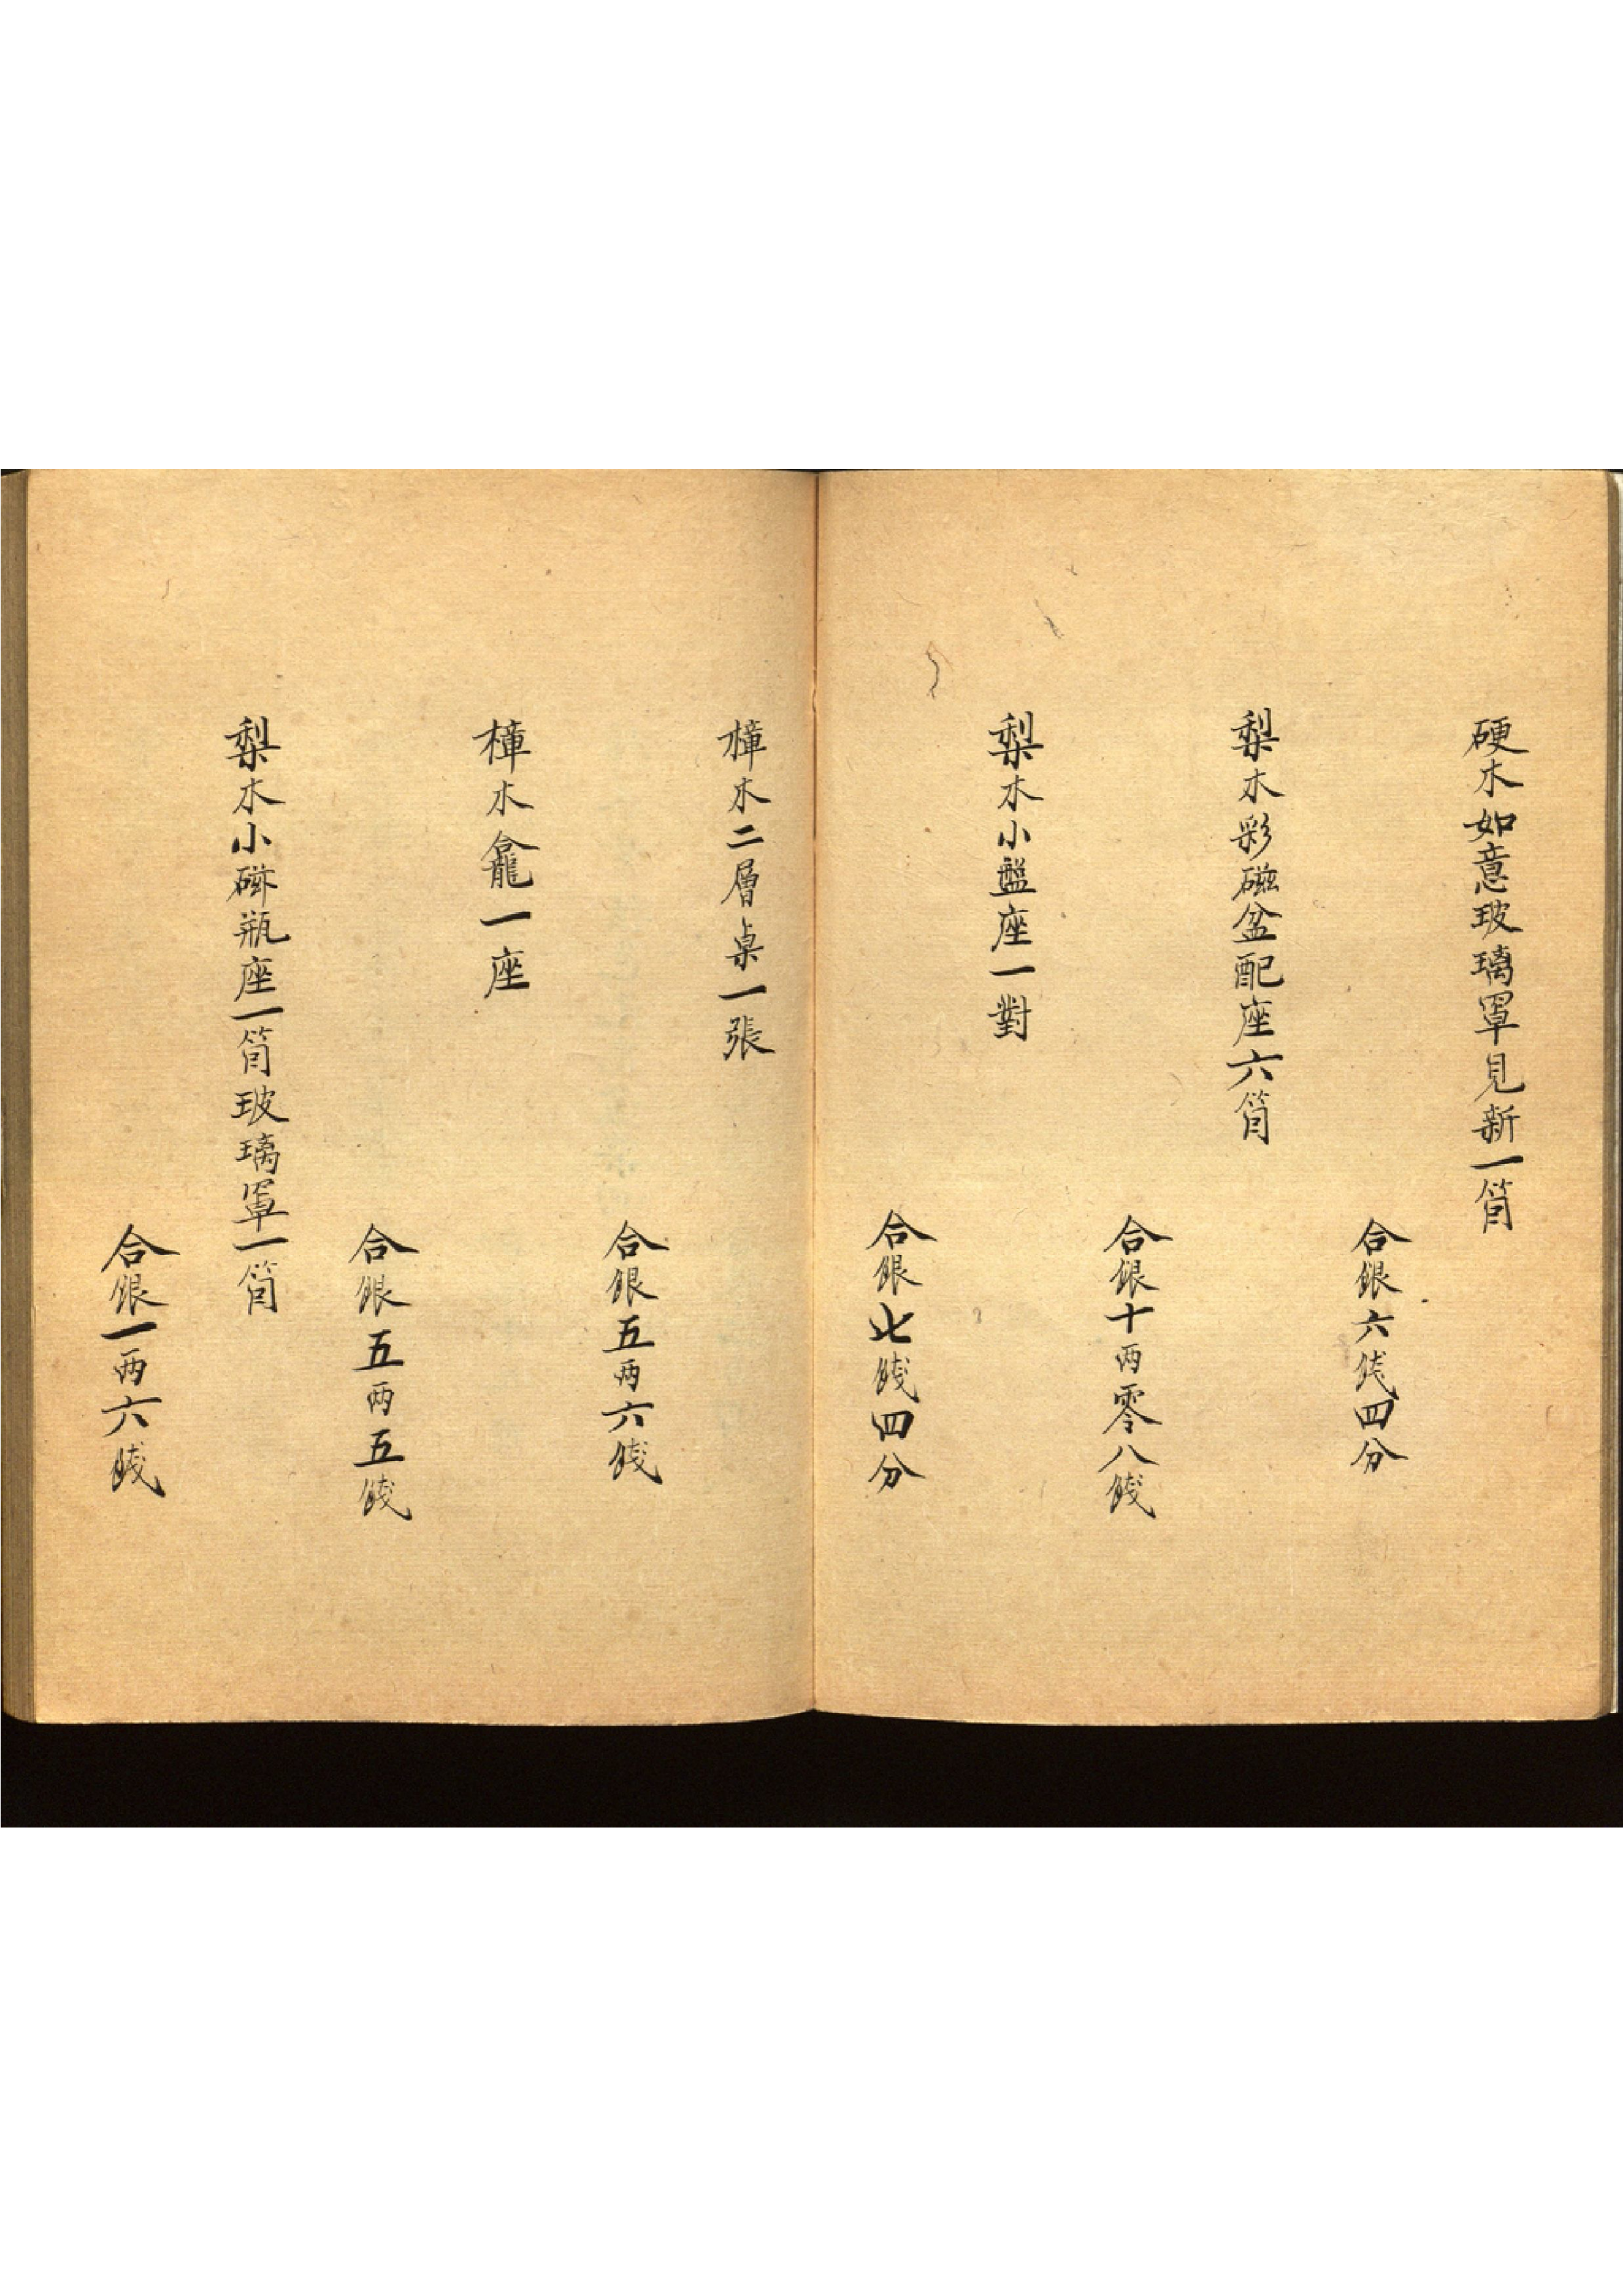 硬木如意玻璃罩見新一箇
合銀六錢四分
梨木彩磁盆配座六箇
合銀十两零八錢
梨木小盤座一對
合銀七錢四分
樟木二層桌一張
合銀五两六錢
樟木龕一座
合銀五两五錢
梨木小磁瓶座一箇玻璃罩一箇
合銀一两六錢